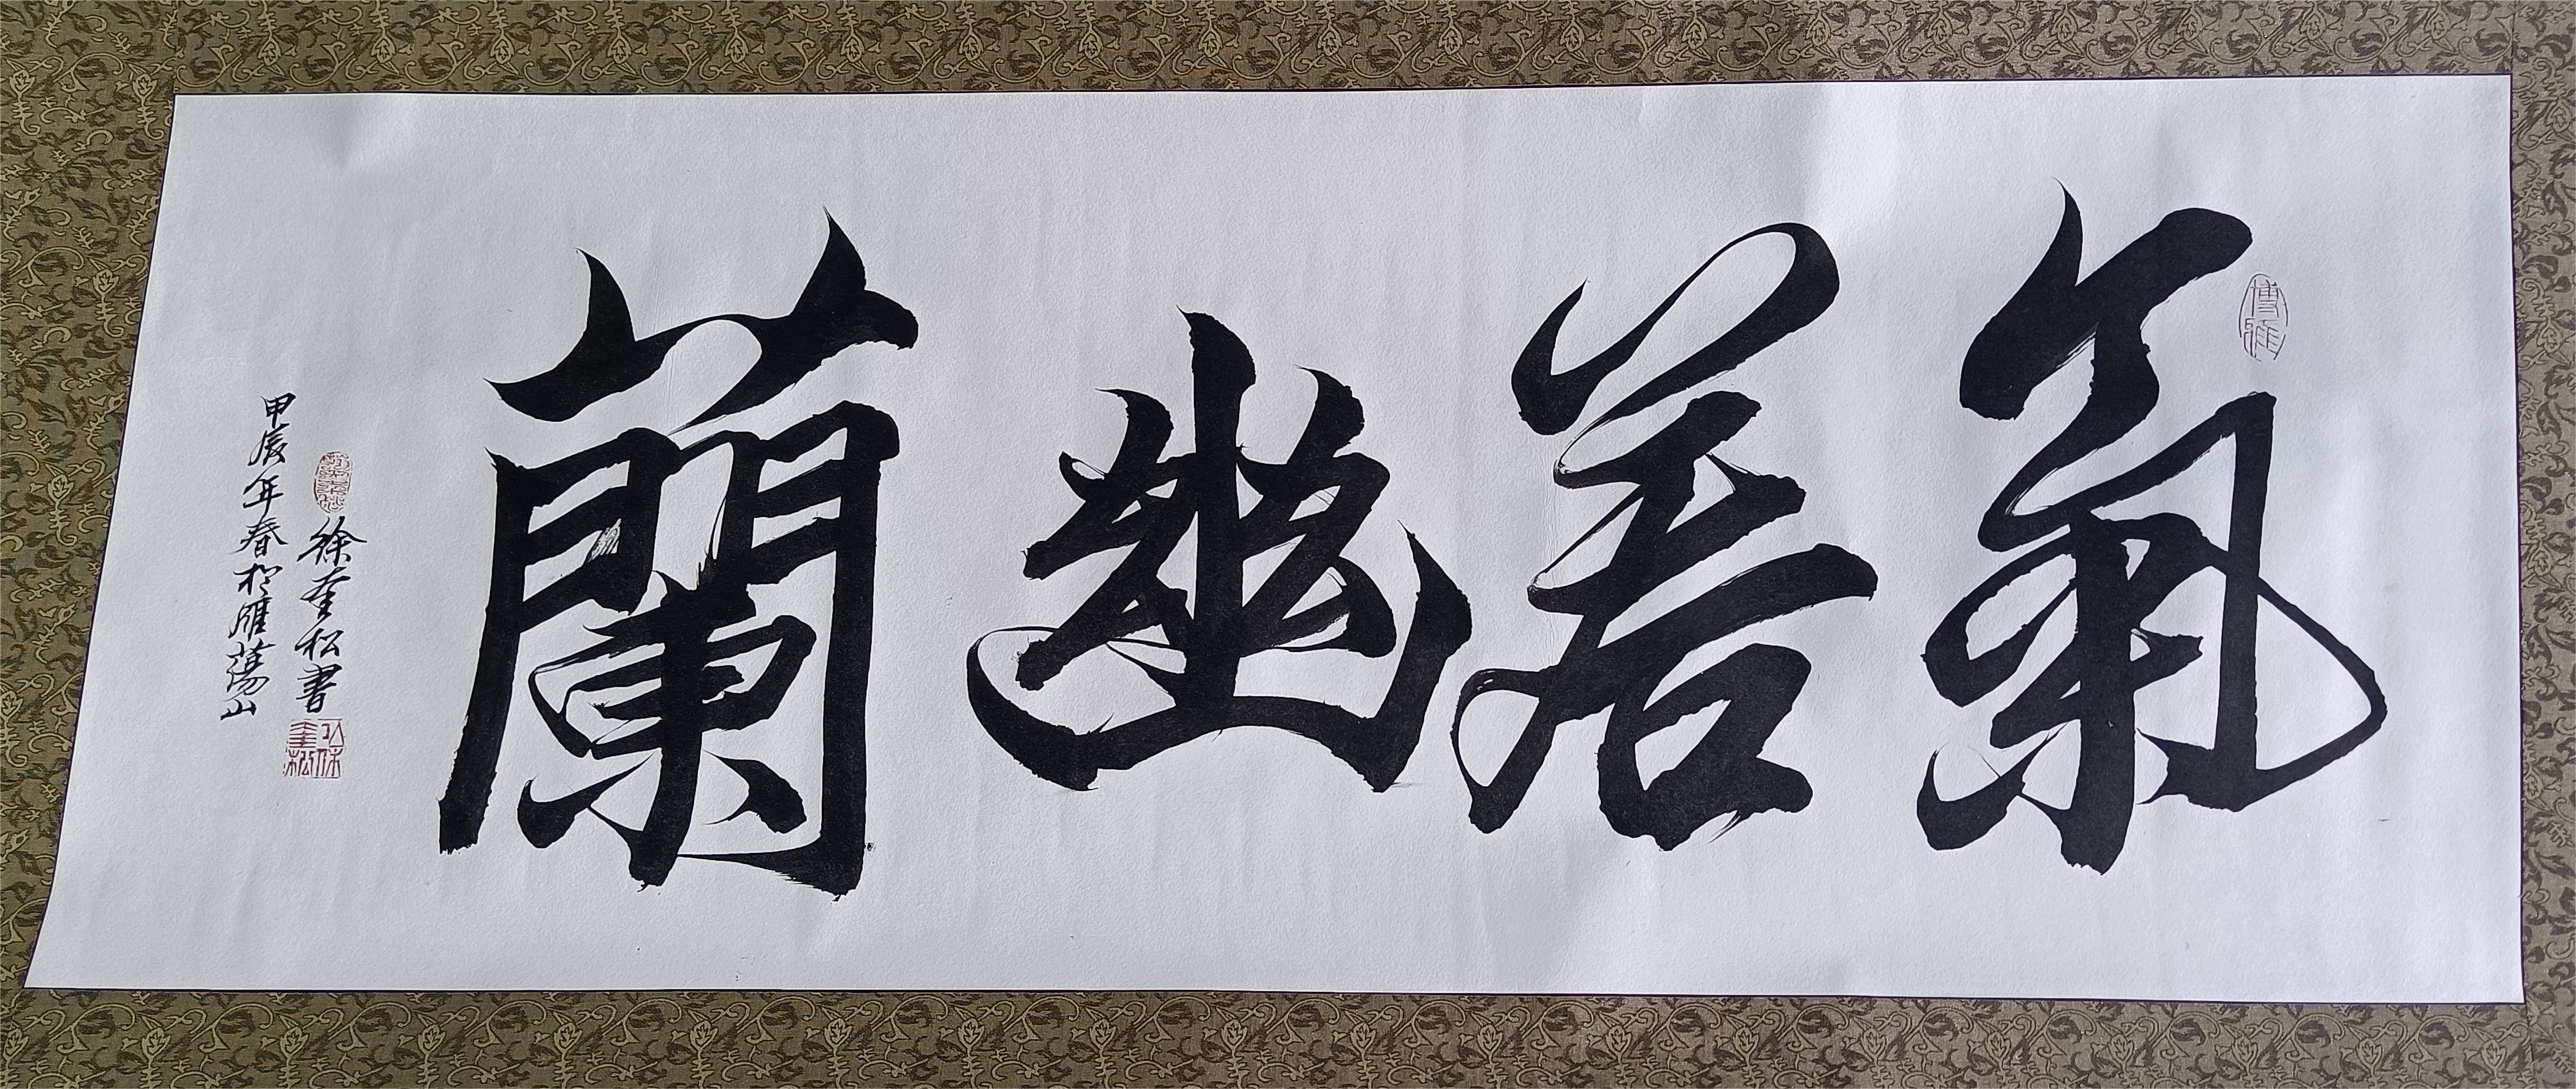 氣若幽蘭
徐奎松書
甲辰年春於雁蕩山
博雅